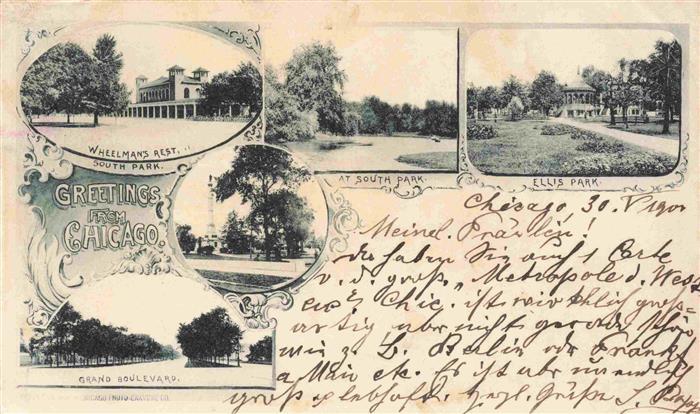 WHEELMAN'S REST,
SOUTH PARK.
AT SOUTH PARK.
ELLIS PARK.
GREETINGS
FROM
CHICAGO.
GRAND BOULEVARD.
CHICAGO PHOTO-ENGRAVING CO.
Chicago, 30. V 1900
Meinel. Fräulein!
Da haben Sie auch 1 Carte
v. d. groß. „Metropole d. West
Chic. ist wirklich groß=
artig aber nicht gerade schön
wie z. B. Berlin oder Frankf.
a Main etc. Es ist aber unendlich
groß & lebhaft. Herzl. Grüße S.